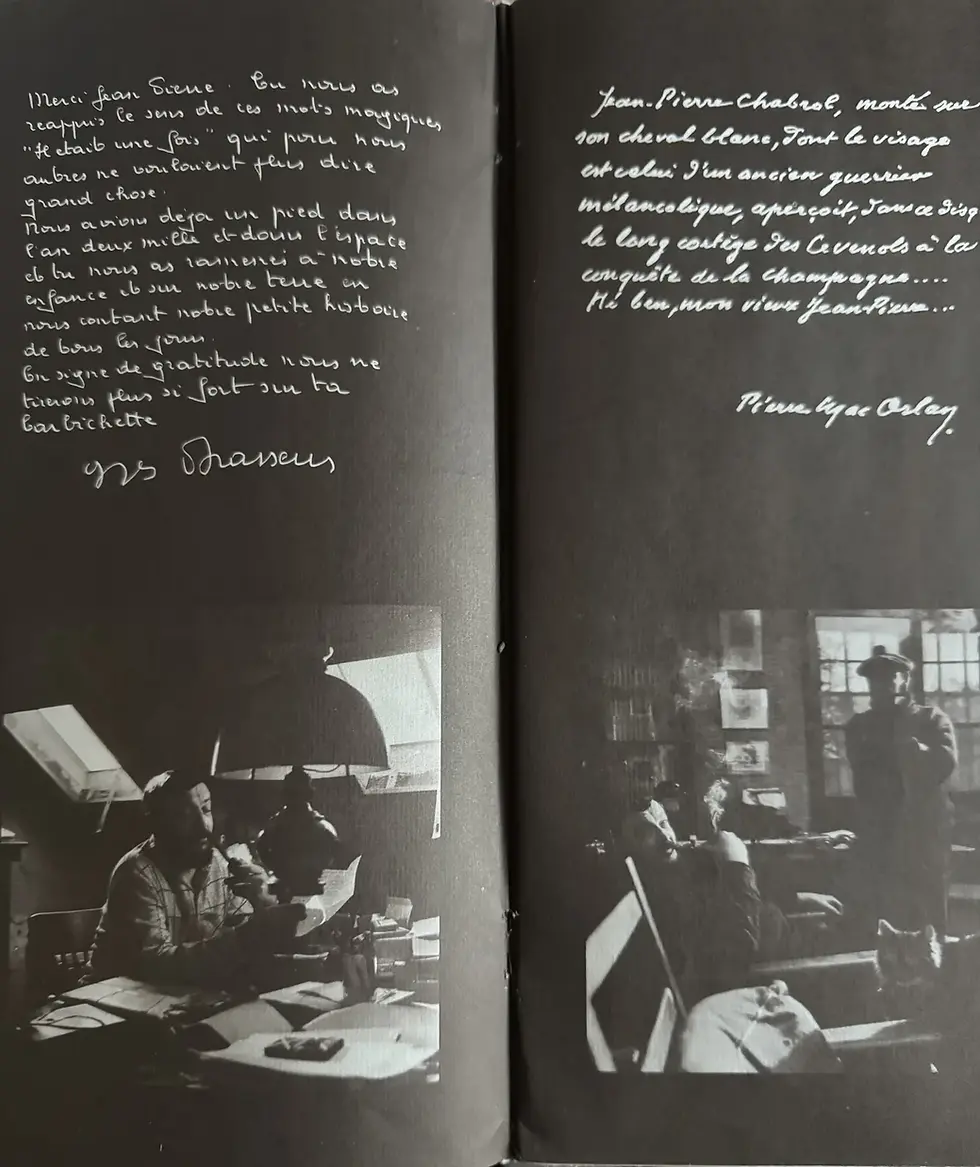 Merci Jean Pierre. Tu nous as
reappris le sens de ces mots magiques
"Il était une fois" qui pour nous
autres ne voulaient plus dire
grand chose.
Nous avions déja un pied dans
l'an deux mille et dans l'espace
et tu nous as ramenés à notre
enfance et sur notre terre en
nous contant notre petite histoire
de tous les jours.
En signe de gratitude nous ne
tirerons plus si fort sur ta
barbichette
Brassens
Jean-Pierre Chabrol, monté sur
son cheval blanc, dont le visage
est celui d'un ancien guerrier
mélancolique, aperçoit, dans ce disq
le long cortège des Cevenols à la
conquête de la champagne....
Hé ben, mon vieux Jean-Pierre...
Pierre Mac Orlan